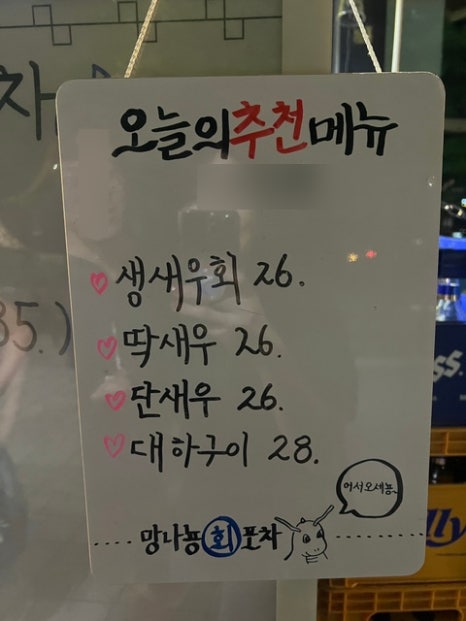 오늘의추천메뉴
생새우회 26.
딱새우 26.
단새우 26.
대하구이 28.
어서오세뇽
망나뇽회포차
차
35.)
ss.
lly